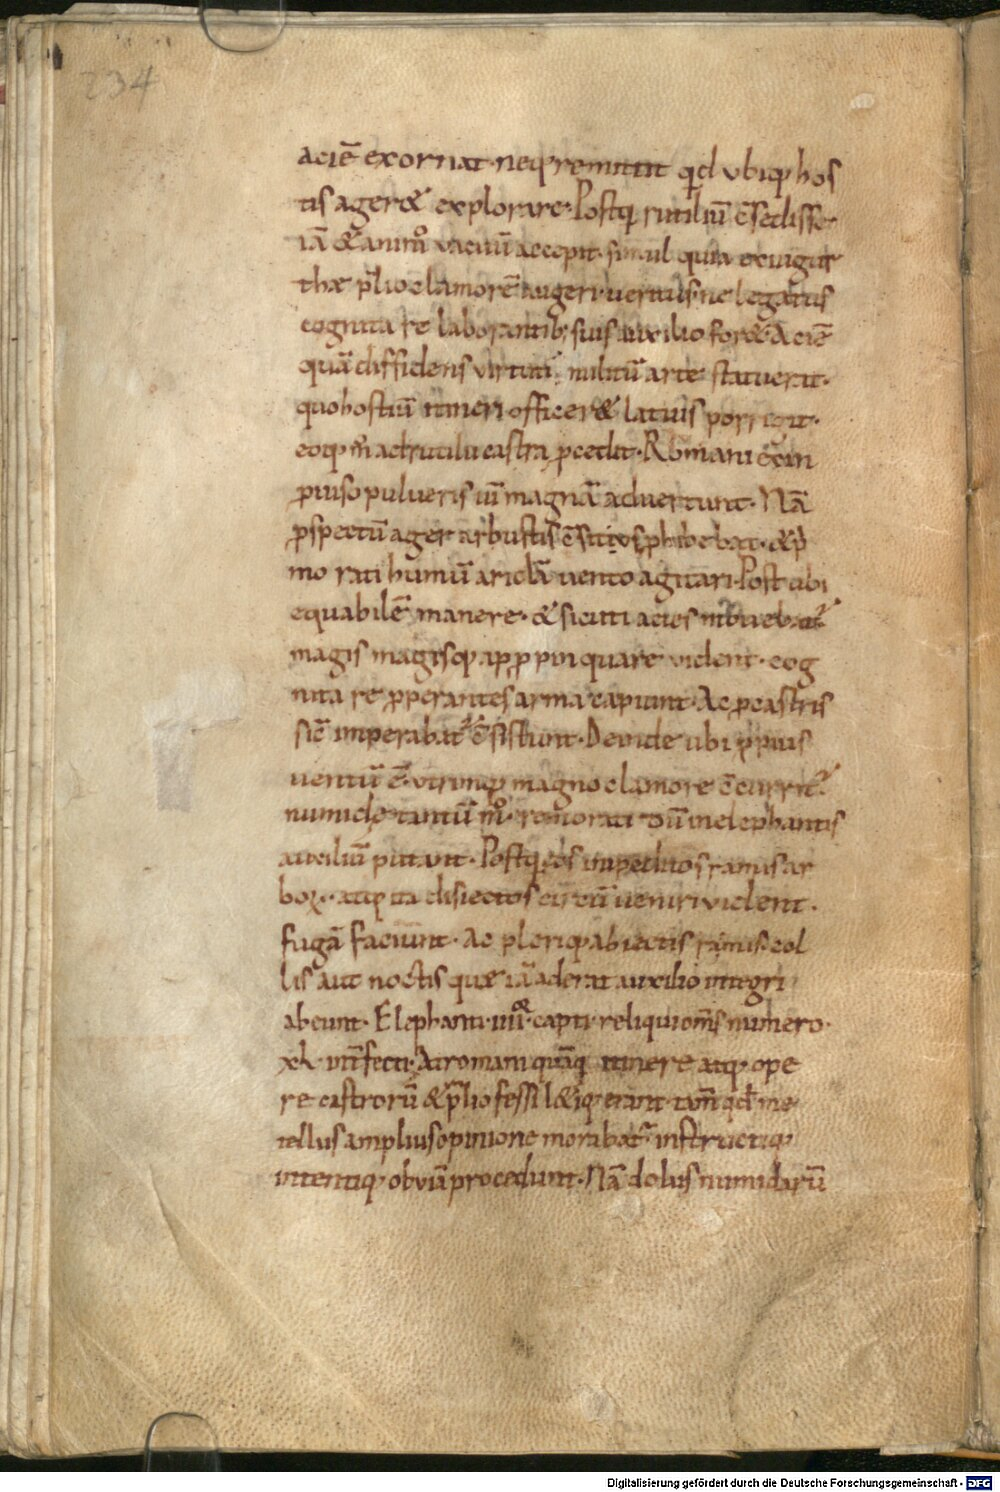 234
aciē exornat· neq; remittit qd ubiq; hos
tis ager& explorare· Postq̄ rutiliū c̄sedisse
iā & animo vacuū accepit· simul quia ex iugur
thæ p̄lio clamorē augeri· veritus· ne legatus
cognita re laborantib; suis auxilio for&· Aciē
quā diffidens virtuti militū arte statuerat·
quo hostiū itineri officer& latius porrigit·
eoq; m̄ ad rutilii castra procedit· Romani ex in
prouiso pulueris uī magnā aduertunt· Nā
prospectū ager arbustis c̄situs phibebat· & p̄
mo rati humū aridā uento agitari· Post ubi
equabilē manere· & sicuti acies mouebat᷑
magis magisq; appropinquare vident· cog
nita re properantes arma capiunt· Ac pro castris
sic̄ imperabat᷑ c̄sistunt· Deinde ubi propius
uentū ē· utrimq; magno clamore c̄currit᷑
numidę tantū mº remorati dū in elephantis
auxiliū putant· Postq̄ eos impeditos ramis ar
boꝝ· atq; ita disiectos circūueniri vident·
fugā faciunt· Ac pleriq; abiectis armis col
lis aut noctis quæ iā aderat auxilio integri
abeunt· Elephanti· iiiiºʳ capti· reliqui om̄s numero·
xl· int̄fecti· At romani quāq; itinere atq; ope
re castrorū & p̄lio fessi l&iq; erant· tam̄ qd me
tellus amplius opinione morabat᷑ instructiq;
intentiq; obviā procedunt· Nā dolus numidarū
Digitalisierung gefördert durch die Deutsche Forschungsgemeinschaft - DFG